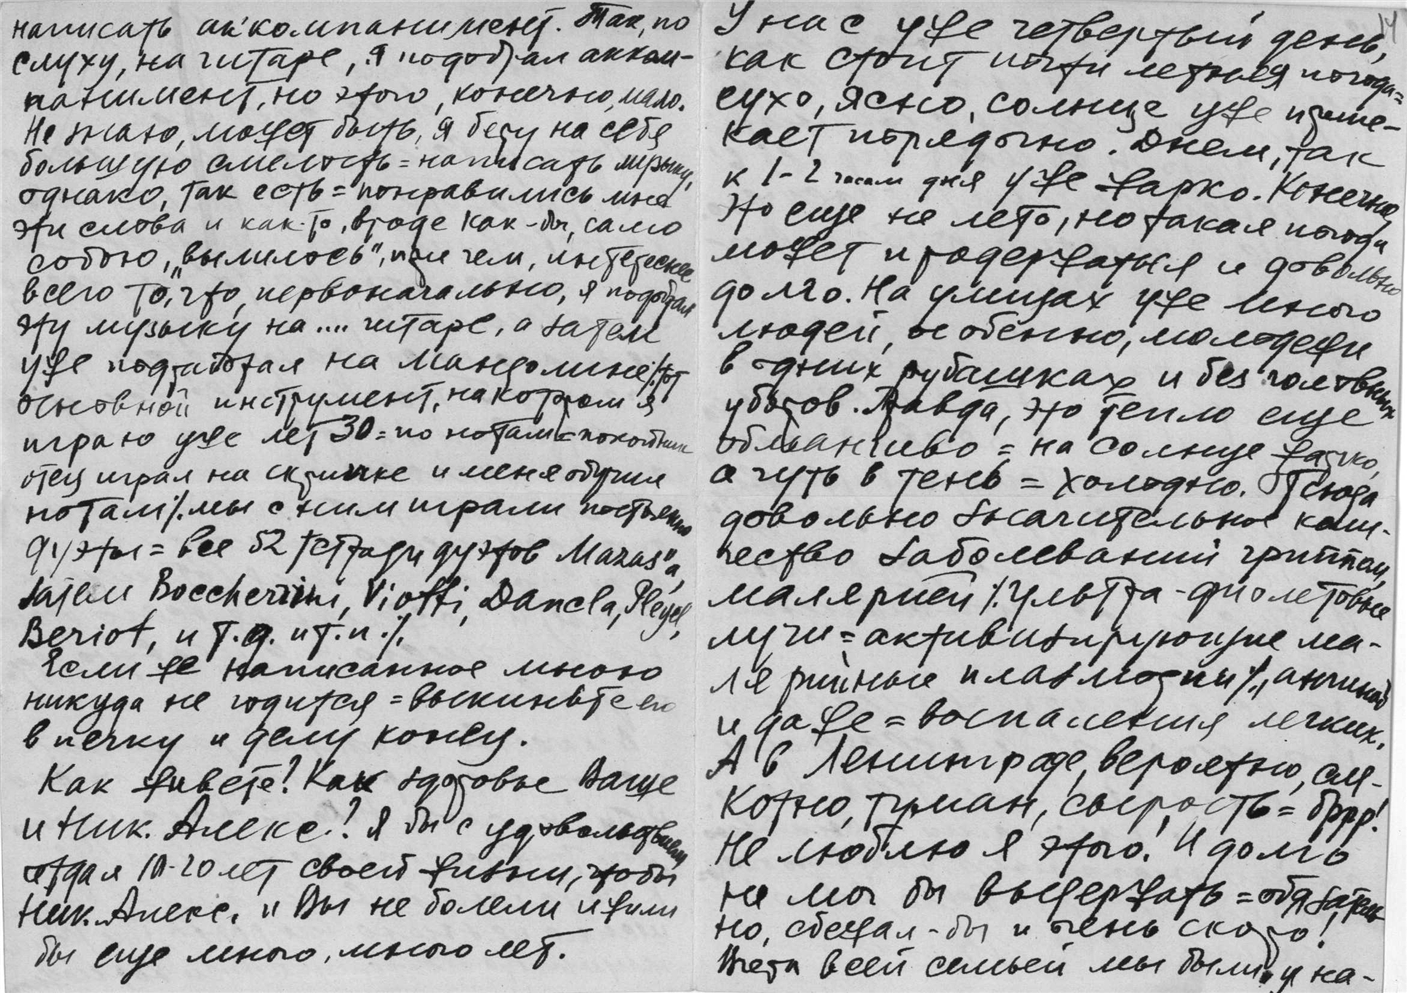 написать аккомпанимент. Так, по
слуху, на гитаре, я подобрал акком-
панимент, но этого, конечно, мало.
Не знаю, может быть, я беру на себя
большую смелость = написать музыку,
однако, так есть = понравились мне
эти слова и как-то, вроде как-бы, само
собою, „вылилось", при чем, интереснее
всего то, что, первоначально, я подобрал
эту музыку на .... гитаре, а затем
уже подработал на мандолине /: тот
основной инструмент, на котором я
играю уже лет 30 = по нотам = покойник
отец играл на скрипке и меня обучил
нотам /. мы с ним играли постоянно
дуэты = все 52 тетради дуэтов Mazas'a,
затем Boccherini, Viotti, Dancla, Pleyel,
Beriot, и т.д. и т.п. /.
Если же написанное мною
никуда не годится = выкиньте его
в печку и делу конец.
Как живете? Как здоровье Ваше
и Ник. Алекс.? Я бы с удовольствием
отдал 10-20 лет своей жизни, чтобы
Ник. Алекс. и Вы не болели и жили
бы еще много, много лет.
14
У нас уже четвертый день,
как стоит почти летняя погода =
сухо, ясно, солнце уже припе-
кает порядочно. Днем, так
к 1-2 часам дня уже жарко. Конечно,
это еще не лето, но такая погода
может продержаться и довольно
долго. На улицах уже много
людей, особенно, молодежи
в одних рубашках и без головных
уборов. Правда, это тепло еще
обманчиво = на солнце жарко,
а чуть в тень = холодно. Отсюда
довольно значительное коли-
чество заболеваний гриппом,
малярией /. ультра-фиолетовые
лучи = активизирующие ма-
лярийные плазмодии /., ангиной
и даже = воспаления легких.
А в Ленинграде, вероятно, сля-
котно, туман, сырость = бррр!
Не люблю я этого! И долго
не мог бы выдержать = обязатель
но, сбежал-бы и очень скоро!
Вчера всей семьей мы были у на-